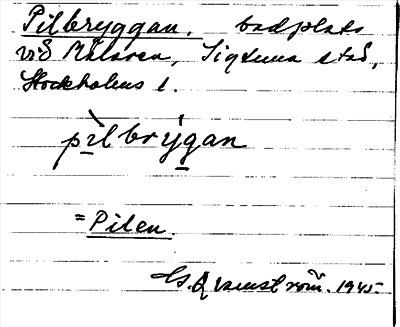 Pilbryggan, badplats
vid Mälaren, Sigtuna stad,
Stockholms l.
pìlbrýgan
= Pilen.
G. Qvarnström. 1945.